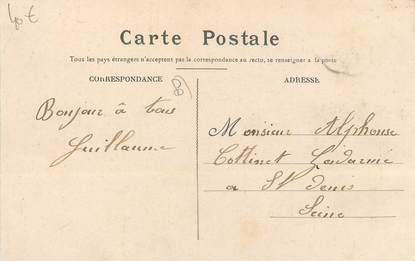 40€
Carte Postale
Tous les pays étrangers n'acceptent pas la correspondance au recto, se renseigner à la poste
CORRESPONDANCE
ADRESSE
Bonjour à tous
Guillaume
Monsieur Alphonse
Cottinet
a St Denis
Seine